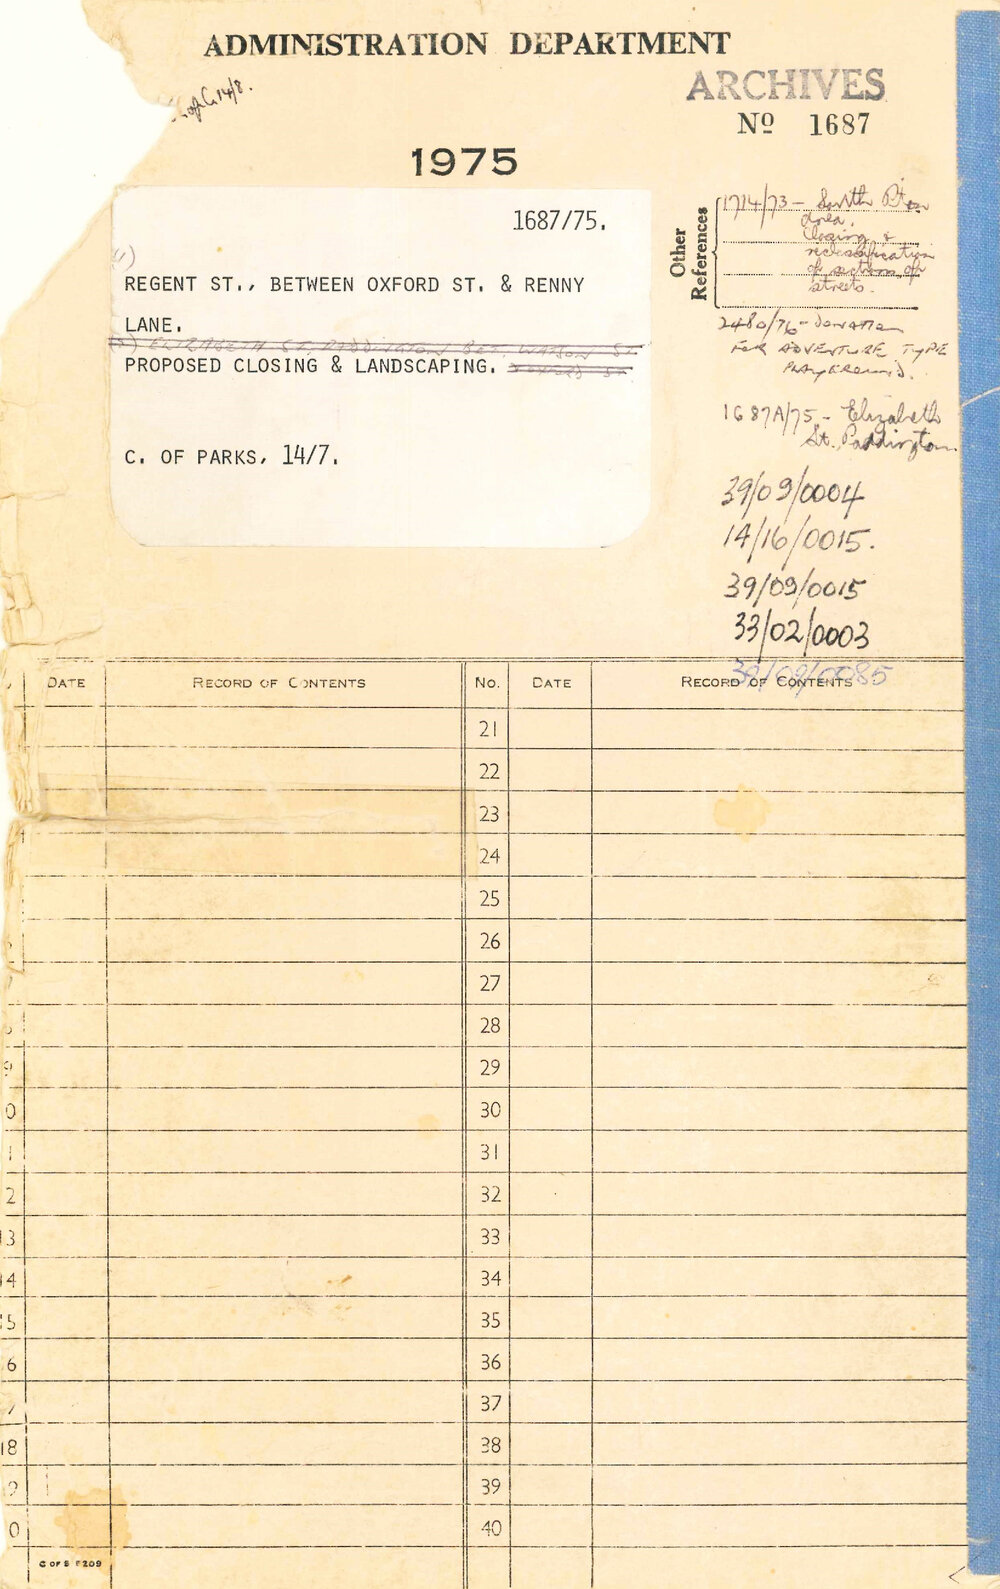 ADMINISTRATION DEPARTMENT
14/8.
ARCHIVES
Nº 1687
1975
1687/75.
(1)
REGENT ST., BETWEEN OXFORD ST. & RENNY
LANE.
(2) ELIZABETH ST. PADDINGTON BET. WATSON ST
PROPOSED CLOSING & LANDSCAPING. OXFORD ST.
C. OF PARKS, 14/7.
Other
References
1714/73 - South
area.
Closing &
reclassification
of sections of
streets.
2480/76 - donation
FOR ADVENTURE TYPE
PLAYGROUND.
1687A/75 - Elizabeth
St. Paddington
39/09/0004
14/16/0015.
39/09/0015
33/02/0003
39/09/0085
DATE RECORD OF CONTENTS No. DATE RECORD OF CONTENTS
21
22
23
24
25
26
27
28
9 29
0 30
1 31
2 32
3 33
4 34
5 35
6 36
7 37
18 38
9 39
0 40
C OF S F209